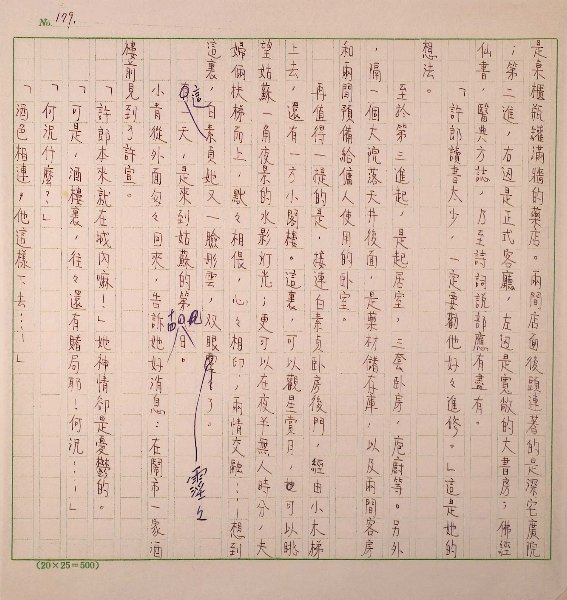 No. 179.
是桌櫃瓶罐滿牆的藥店。兩間店角後頭連著的是深宅廣院
；第二進，右邊是正式客廳，左邊是寬敞的大書房；佛經
仙書，醫典方誌，乃至詩詞說部應有盡有。
「許郎讀書太少，一定要勸他好々進修。」這是她的
想法。
至於第三進起，是起居室，三套臥房，庖廚等。另外
，隔一個大院落天井後面，是藥材儲存庫，以及兩間客房
和兩間預備給傭人使用的臥室。
再值得一提的是，接連白素貞臥房後門，經由小木梯
上去，還有一方小閣樓。這裏，可以觀星賞月，也可以眺
望姑蘇一角夜景的水影灯光；更可以在夜半無人時分，夫
婦倆扶梯而上，默々相偎，心々相印，兩情交融……想到
這裏，白素貞她又一臉彤雲，双眼溼々了。
這天，是來到姑蘇的第十四日。
小青從外面匆々回來，告訴她好消息：在鬧市一家酒
樓前見到了許宣。
「許郎本來就在城內嘛！」她神情卻是憂鬱的。
「可是，酒樓裏，往々還有賭局耶！何況！…」
「何況什麼？」
「酒色相連，他這樣下去……」
(20×25=500)